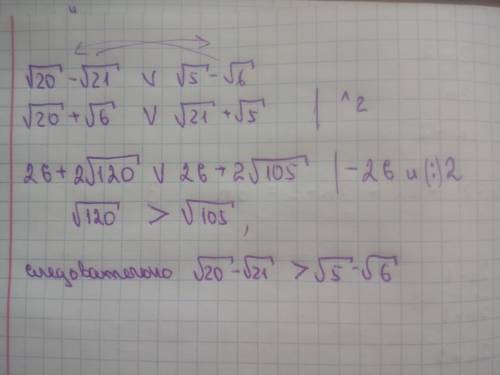 √20 - √21 ∨ √5 - √6
√20 + √6 ∨ √21 + √5 | ^2
26 + 2√120 ∨ 26 + 2√105 | -26 и (:)2
√120 > √105,
следовательно √20 - √21 > √5 - √6